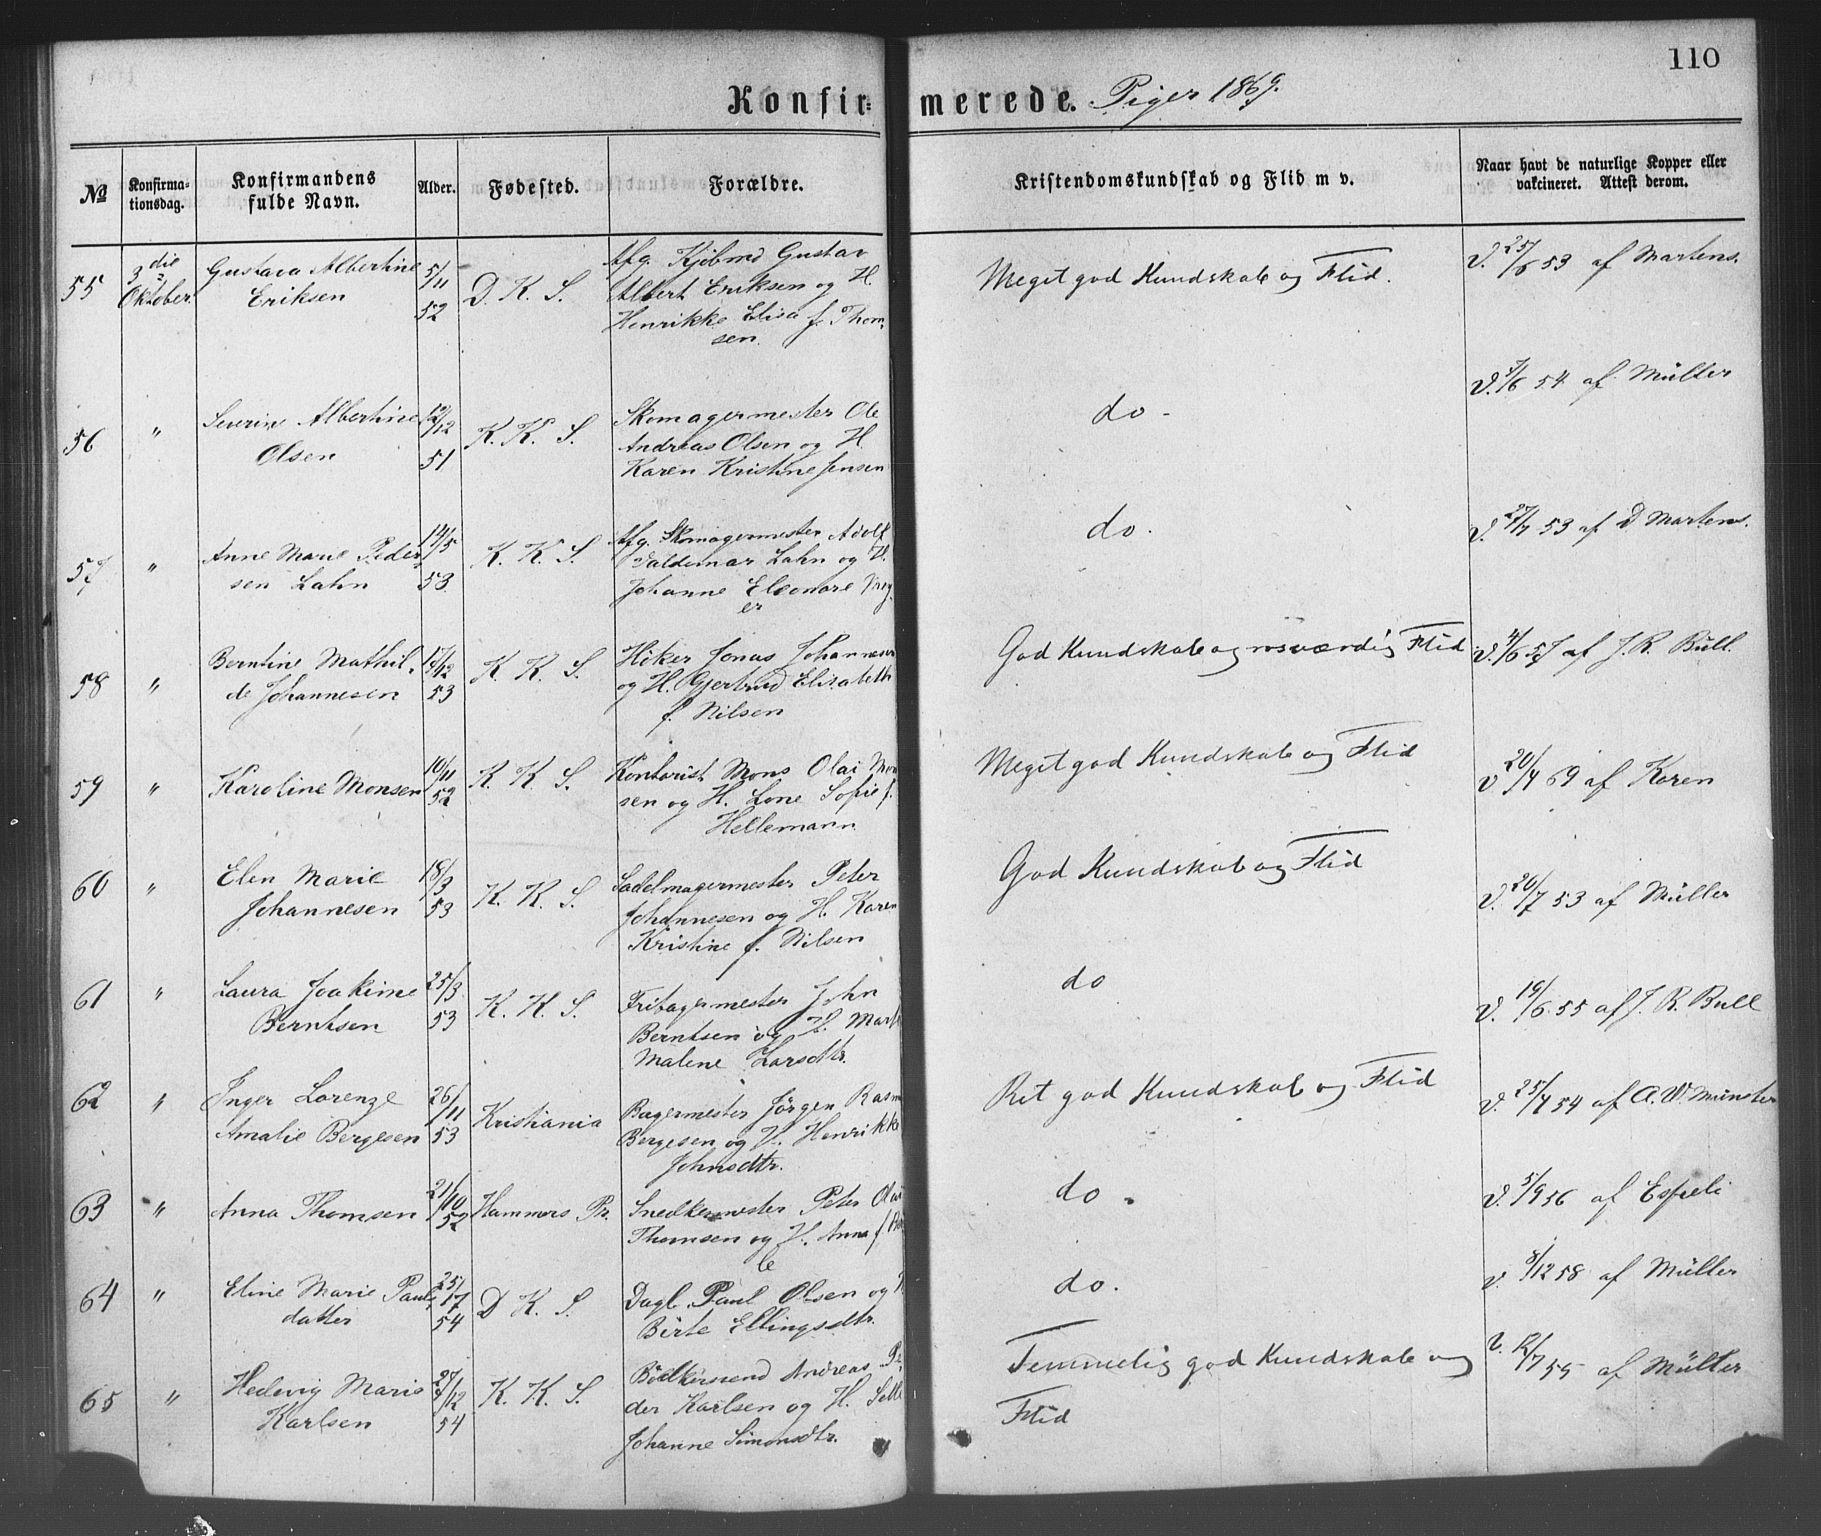 110
Konfirmerede. Piger 1869.
№
Konfirma-
tionsdag.
Konfirmandens
fulde Navn.
Alder.
Fødested.
Forældre.
Kristendomskundskab og Flid m v.
Naar havt de naturlige Kopper eller
vakcineret. Attest derom.
55
3die
Oktober.
Gustava Albertine
Eriksen
5/11
52
D. K. S.
Afg. Kjøbmd Gustav
Albert Eriksen og H.
Henrikke Elisa f. Thom-
sen.
Meget god Kundskab og Flid.
V. 25/6 53 af Martens.
56
"
Severine Albertine
Olsen
12/12
51
K. K. S.
Skomagermester Ole
Andreas Olsen og H.
Karen Kristine Jensen
do -
V. 7/6 54 af Müller
57
"
Anne Marie Peder-
sen Lahn
14/5
53
K. K. S.
Afg. Skomagermester Adolf
Valdemar Lahn og H.
Johanne Eleonore
do.
V. 27/7 53 af D Martens.
58
"
Berntine Mathil-
de Johannesen
17/12
53
K K. S.
Høker Jonas Johannesen
og H. Gjertrud Elisabeth
f. Nilsen
God Kundskab og rosværdig Flid
V. 4/6 57 af J. R. Bull.
59
"
Karoline Monsen
10/11
52
K K S.
Kontorist Mons Olai Mon
sen og H. Lone Sofie f.
Hellemann
Meget god Kundskab og Flid
V 20/4 69 af Koren
60
"
Elen Marie
Johannesen
18/3
53
K. K. S.
Sadelmagermester Peter
Johannesen og H. Karen
Kristine f. Nilsen
God Kundskab og Flid
V. 26/7 53 af Müller
61
"
Laura Joakime
Berntsen
25/3
53
K. K. S.
Fribagermester John
Berntsen og H. Mart
Malene Larsdtr.
do
V. 19/6 55 af J. R. Bull
62
"
Inger Lorenze
Amalie Bergesen
26/11
53
Kristiania
Bagermester Jörgen Rasm
Bergesen og H. Henrikke
Johnsdtr.
Ret god Kundskab og Flid
V. 25/7 54 af A. W. Münster
63
"
Anna Thomsen
21/10
52
Hammers Pr.
Snedkermester Peter Olai
Thomsen og H. Anna f.
do -
V. 5/9 56 af Espeli
64
"
Eline Marie Pauls-
datter
25/7
54
D K. S.
Dagl. Paul Olsen og H
Birte Ellingsdtr.
do.
V. 8/12 58 af Müller
65
"
Hedevig Marie
Karlsen
27/12
54
K. K. S.
Bödkersvend Andreas Pe-
der Karlsen og H.
Johanne Simonsdtr.
Temmelig god Kundskab og
Flid
V. 12/7 55 af Müller